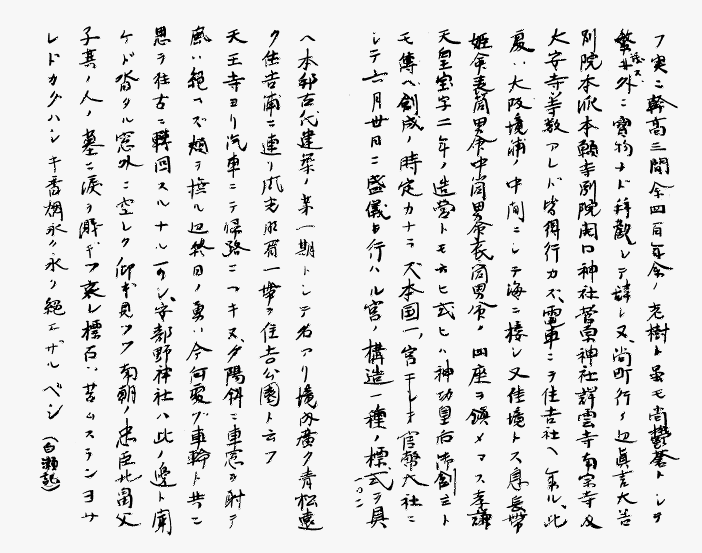 フ実ニ幹高三間余四百年余ノ老樹ト虽モ尚鬱蒼トシテ
繁茂ス外ニ宝物ナド拝観シテ辞シ又尚町行ノ辺真言大
別院本派本願寺別院開口神社菅原神社祥雲寺南宗寺及
大安寺等数アレド皆得行カズ電車ニテ住吉社ヘ参ル、此
處ハ大阪境浦ノ中間ニシテ海ニ接シ又佳境トス息長帯
姫命表筒男命中筒男命底筒男命ノ四座ヲ鎮メマス孝謙
天皇宝字二年ノ造営トモ云ヒ或ヒハ神功皇后御創立ト
モ傳ヘ創成ノ時定カナラズ本国一ノ宮ニシテ官幣大社ニ
シテ六月卅日ニ盛儀ヲ行ハル宮ノ構造一種ノ標式ヲ具
ヘ本邦古代建築ノ某一期トシテ名アリ境内廣ク青松遠
ク住吉浦ニ連リ風光明眉一帯ヲ住吉公園ト云フ
天王寺ヨリ汽車ニテ帰路ニツキヌ、夕陽斜ニ車窓ヲ射テ
風ハ絶ヘズ頬ヲ撫ル辺終日ノ勇ハ今何処ゾ車輪ト共ニ
思ヲ往古ニ轉回スルナルベシ、安部野神社ハ此ノ邊ト聞
ケド沓タル窓外ニ空シク仰ギ見ツツ南朝ノ忠臣北畠父
子其ノ人ノ墓ニ涙ヲ濺ギツ哀レ標石ハ苔ムスランヨサ
レドカグハシキ香烟永ク永ク絶エザルベシ（白瀬記）